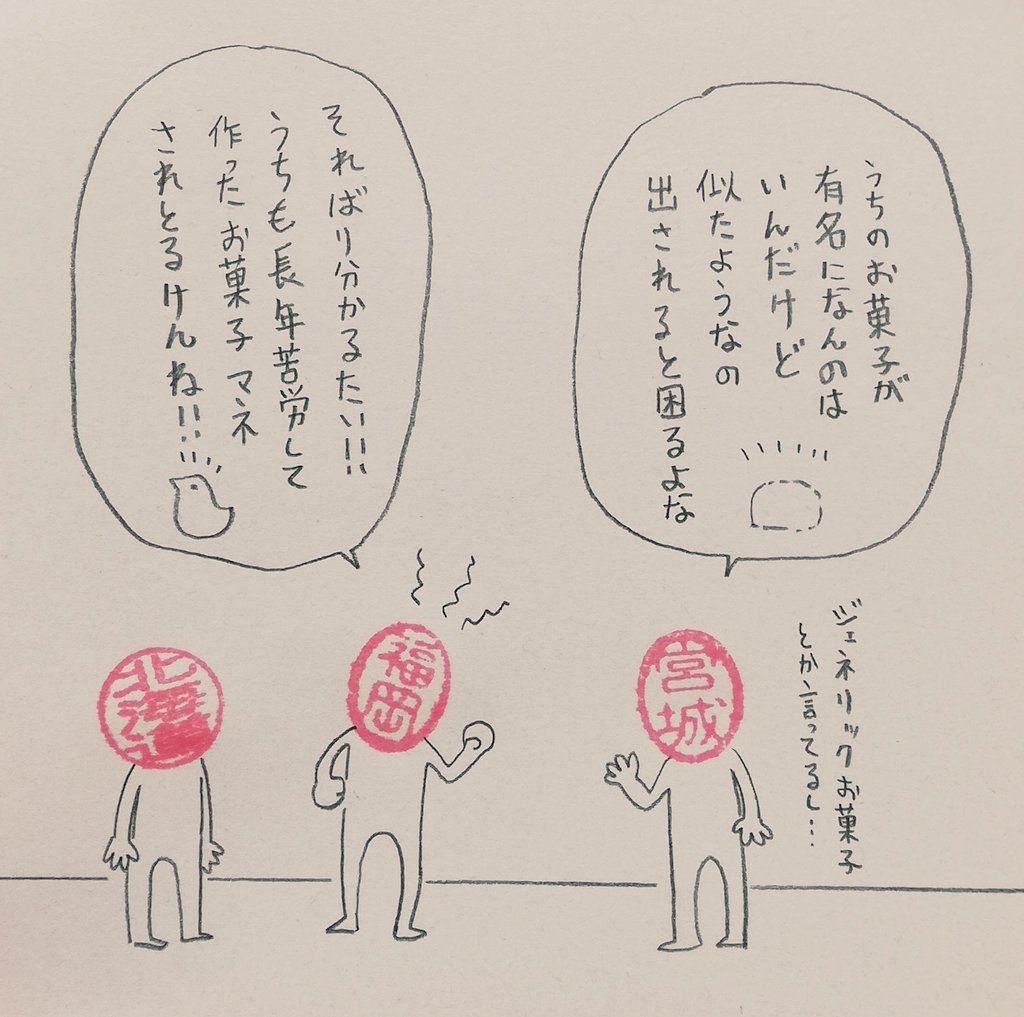 うちのお菓子が
有名になんのは
いんだけど
似たようなの
出されると困るよな
ジェネリックお菓子
とか言ってるし…
そればり分かるたい!!
うちも長年苦労して
作ったお菓子マネ
されとるけんね!!
宮城
福岡
北海道